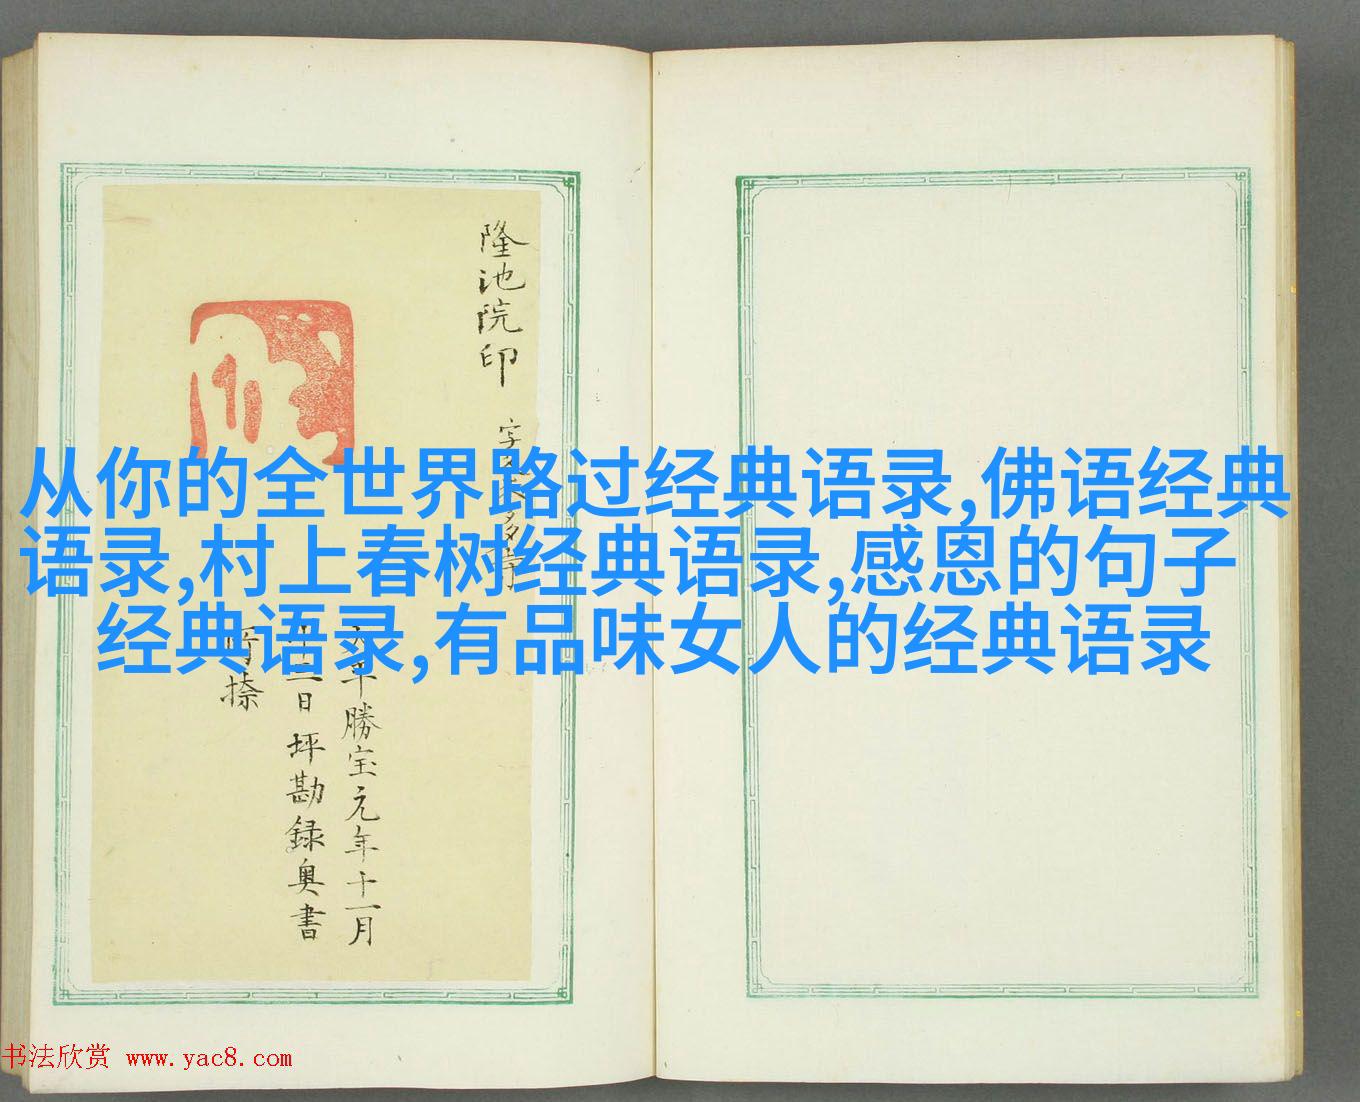 从你的全世界路过经典语录,佛语经典
语录,村上春树经典语录,感恩的句子
经典语录,有品味女人的经典语录
隆池院印
平勝宝元年十一月
日 坪勘録奥書
捺
书法欣赏 www.yac8.com